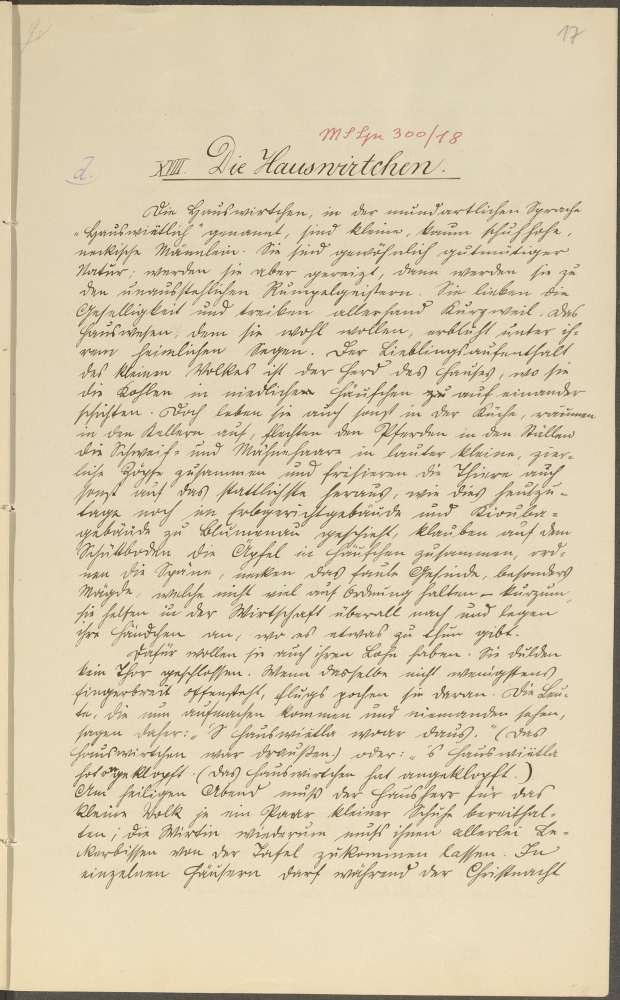 17
MS Lpn 300/18
d.
XVIII. Die Hauswirtchen.
Die Hauswirtchen, in der mundartlichen Sprache
„Hauswiätlich" genannt, sind kleine, kaum schuhhohe,
neckische Männlein. Sie sind gewöhnlich gutmütiger
Natur; werden sie aber gereizt, dann werden sie zu
den unausstehlichen Rumpelgeistern. Sie lieben die
Geselligkeit und treiben allerhand Kurzweil. Das
Hauswesen, dem sie wohl wollen, erblüht unter ih-
rem heimlichen Segen. Der Lieblingsaufenthalt
des kleinen Volkes ist der Herd des Hauses, wo sie
die Kohlen in niedlichen Häufchen auf einander
schichten. Doch leben sie auch sonst in der Küche, räumen
in den Kellern auf, flechten den Pferden in den Ställen
die Schweif- und Mähnehaare in lauter kleine, zier-
liche Zöpfe zusammen und frisieren die Thiere auch
sonst auf das stattlichste heraus, wie dies heutzu-
tage noch im Erbgerichtgebäude und
gebäude zu Blumenau geschieht, klauben auf dem
Schüttboden die Äpfel in Häufchen zusammen, ord-
nen die Späne, necken das faule Gesinde, besonders
Mägde, welche nicht viel auf Ordnung halten – kurzum,
sie helfen in der Wirtschaft überall nach und legen
ihre Händchen an, wo es etwas zu thun gibt.
Dafür wollen sie auch ihren Lohn haben. Sie dulden
kein Thor geschlossen. Wenn dasselbe nicht wenigstens
fingerbreit offensteht, flugs pochen sie daran. Die Leu-
te, die nun aufmachen kommen und niemanden sehen,
sagen daher: „'S Hauswiätla woar daus." (Das
Hauswirtchen war draußen.) oder: „'s Hauswiätla
hot ogeklopft. (Das Hauswirtchen hat angeklopft.)
Am heiligen Abend muß der Hausherr für das
kleine Volk je ein Paar kleiner Schuhe bereithal-
ten; die Wirtin wiederum muß ihnen allerlei Le-
ckerbissen von der Tafel zukommen lassen. In
einzelnen Häusern darf während der Christnacht